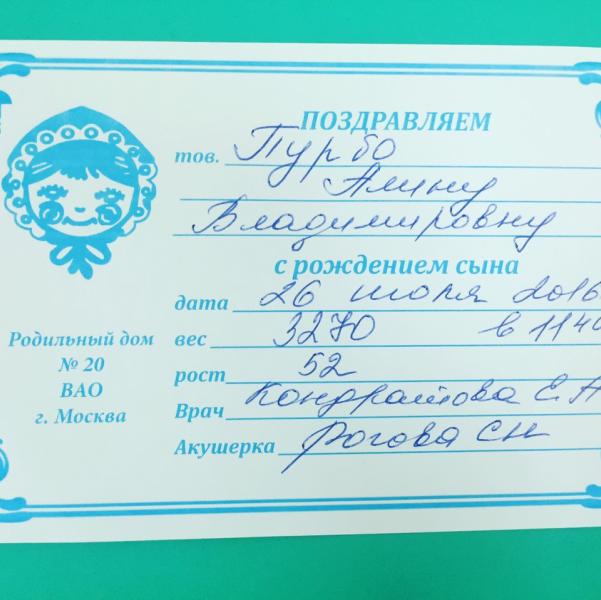 ПОЗДРАВЛЯЕМ
тов. Пурбо
Алину
Владимировну
с рождением сына
дата 26 июля 2016
вес 3270 в 1140
рост 52
Врач Кондратова Е.А
Акушерка Рогова СН
Родильный дом
№ 20
ВАО
г. Москва